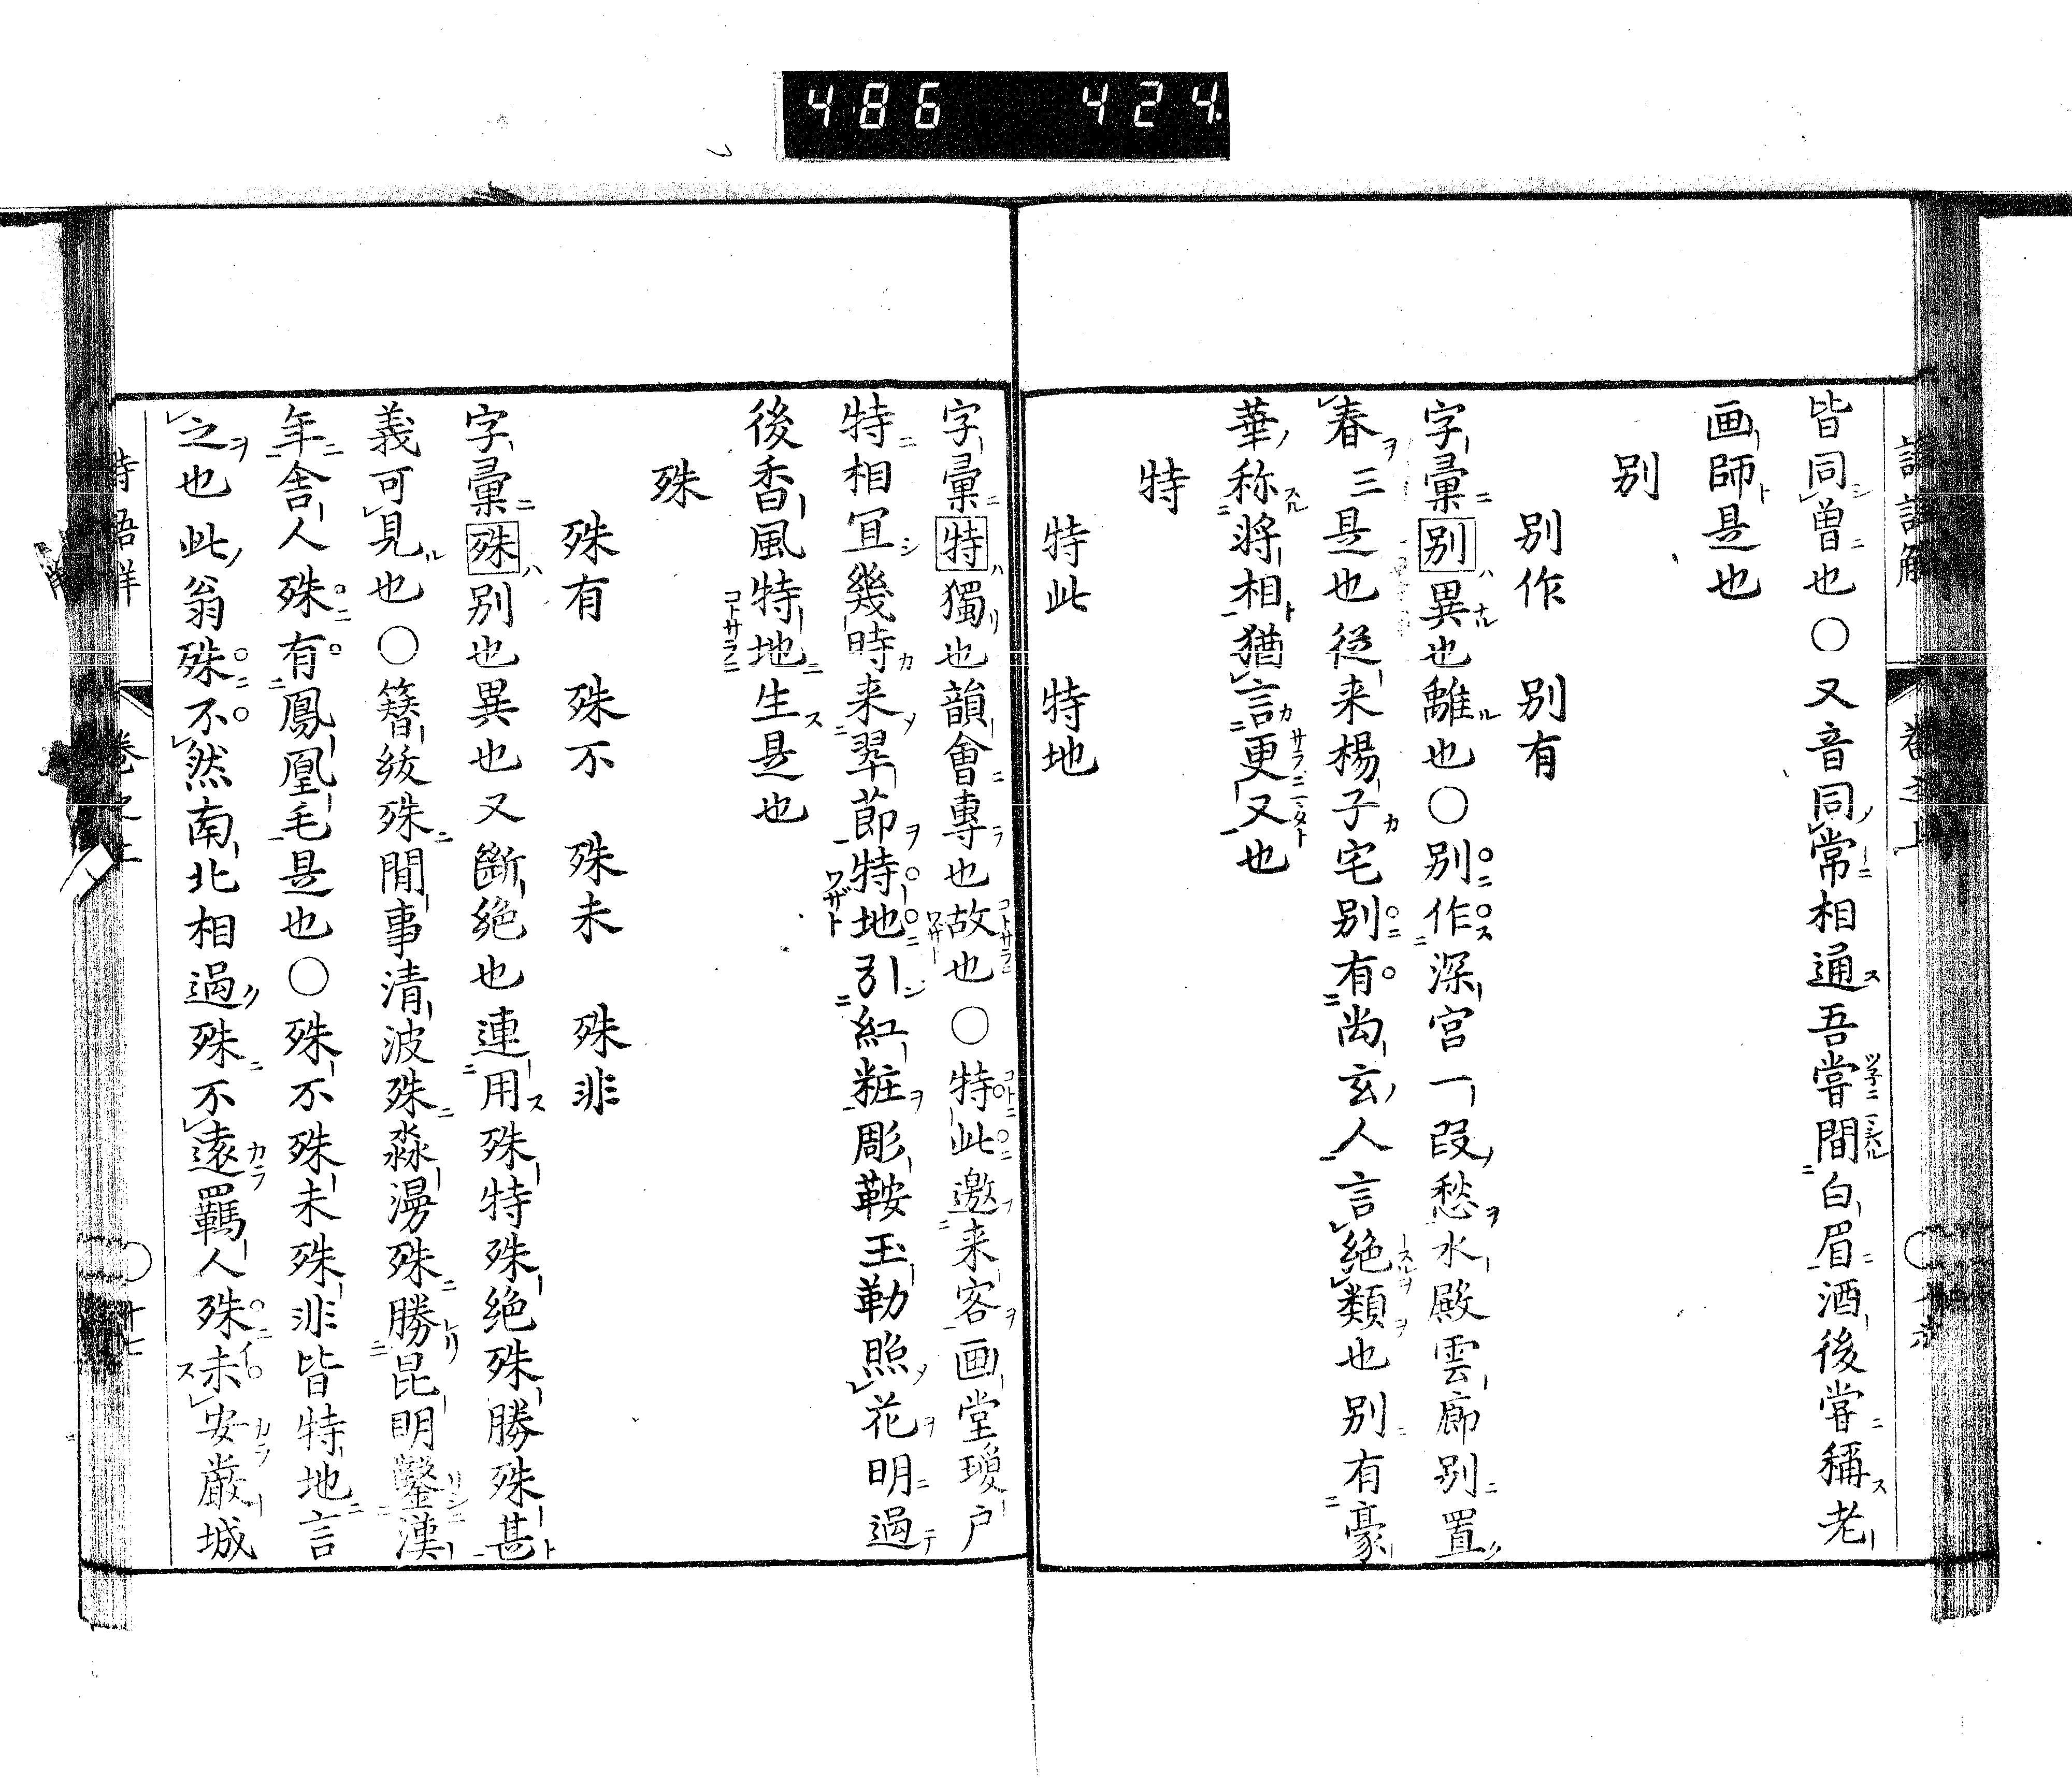 486 424
皆同曽也〇又音同常相通吾嘗間白眉酒後嘗稱老
画師是也
別
別作 別有
字彙別異也離也〇別作深宮一段愁水殿雲廊別置
春三是也従来楊子宅別有尚玄人言絶類也別有豪
華称将相猶言更又也
特
特此 特地
字彙特獨也韻會專也故也〇特此邀来客画堂瓊户
特相宜幾時来翠節特地引紅粧彫鞍玉勒照花明過
後香風特地生是也
殊
殊有 殊不 殊未 殊非
字彙殊別也異也又斷絶也連用殊特殊絶殊勝殊甚
義可見也〇簪紱殊閒事清波殊淼漫殊勝昆明鑿漢
年舎人殊有鳳凰毛是也〇殊不殊未殊非皆特地言
之也此翁殊不然南北相過殊不遠羈人殊未安嚴城